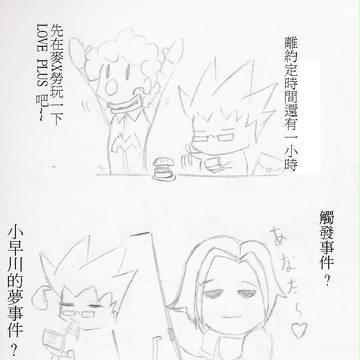 離約定時間還有一小時
先在麥X勞玩一下
LOVE PLUS 吧~~
觸發事件？
あなた～♡
小早川的夢事件？